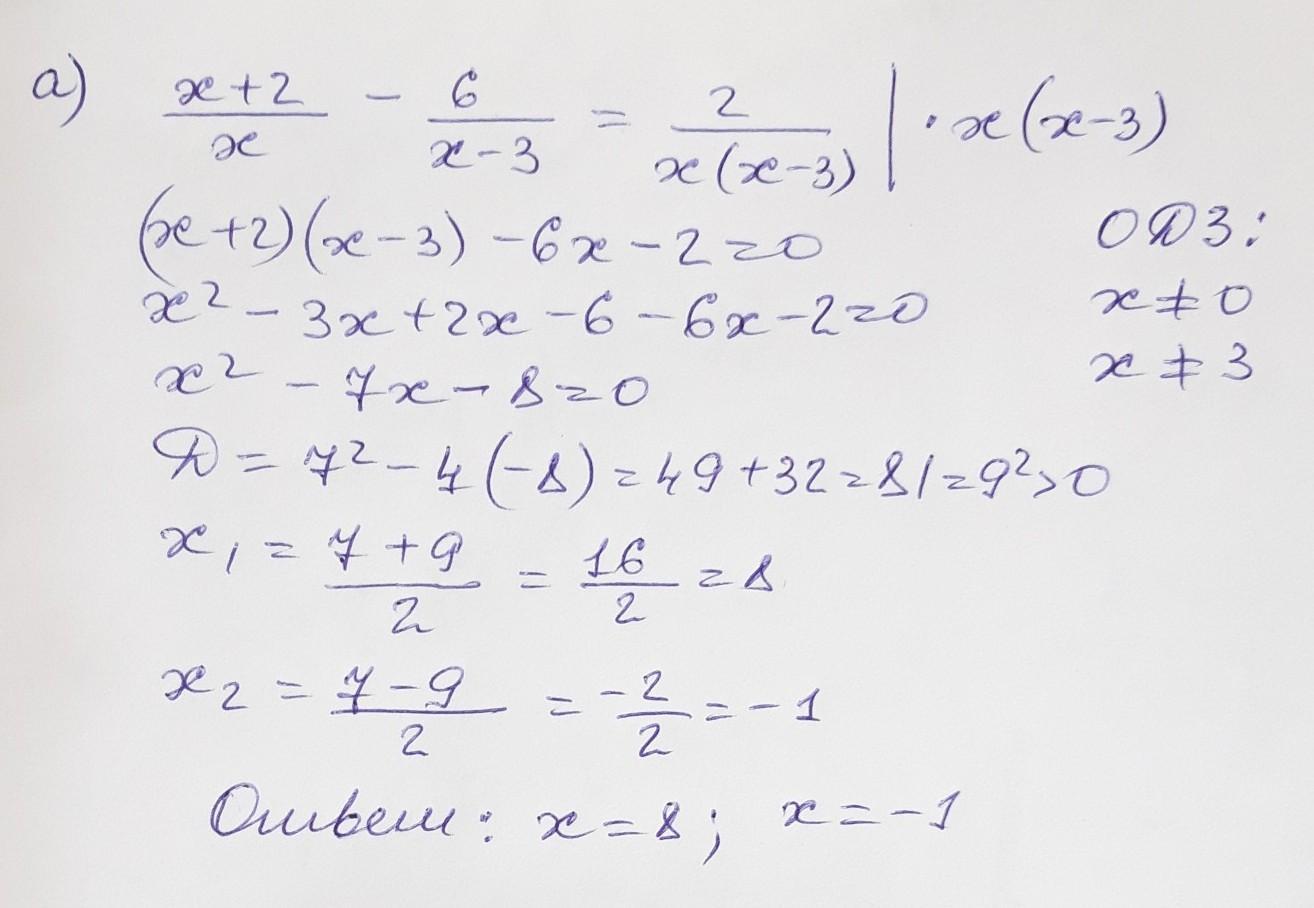 а) (x+2)/x - 6/(x-3) = 2/(x(x-3)) | · x(x-3)
(x+2)(x-3) - 6x - 2 = 0
ОДЗ:
x² - 3x + 2x - 6 - 6x - 2 = 0
x ≠ 0
x² - 7x - 8 = 0
x ≠ 3
Д = 7² - 4(-8) = 49 + 32 = 81 = 9² > 0
x₁ = (7+9)/2 = 16/2 = 8
x₂ = (7-9)/2 = -2/2 = -1
Ответ: x = 8; x = -1